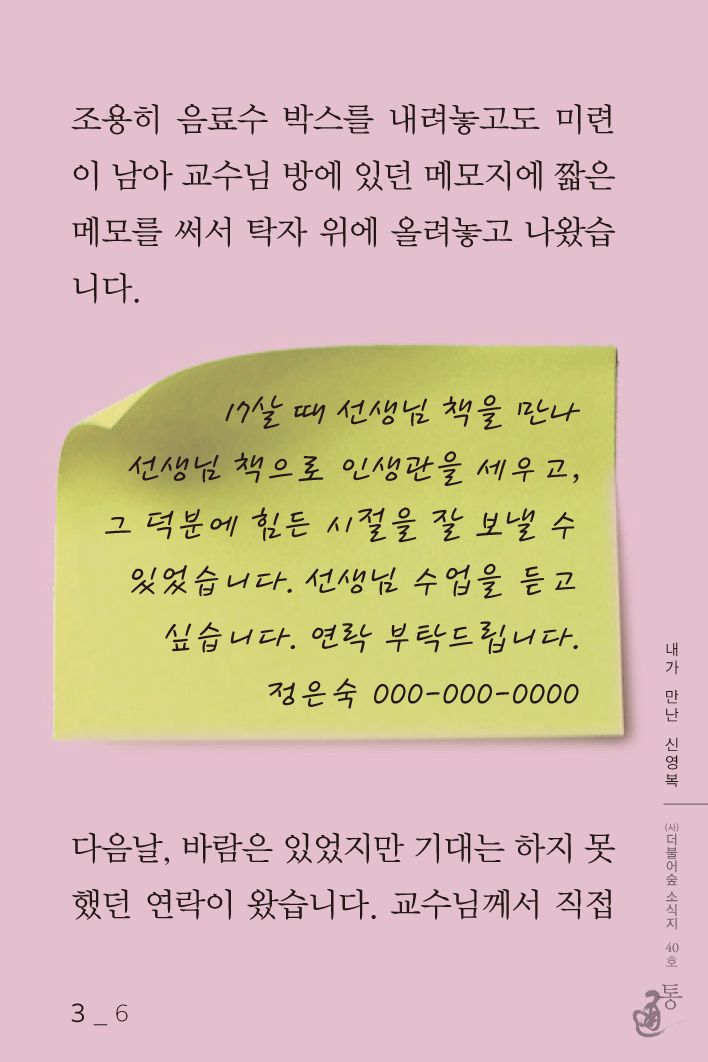 조용히 음료수 박스를 내려놓고도 미련
이 남아 교수님 방에 있던 메모지에 짧은
메모를 써서 탁자 위에 올려놓고 나왔습
니다.
17살 때 선생님 책을 만나
선생님 책으로 인생관을 세우고,
그 덕분에 힘든 시절을 잘 보낼 수
있었습니다. 선생님 수업을 듣고
싶습니다. 연락 부탁드립니다.
정은숙 000-000-0000
다음날, 바람은 있었지만 기대는 하지 못
했던 연락이 왔습니다. 교수님께서 직접
3 _ 6
내가 만난 신영복
(사)더불어숲 소식지 40호
통
通